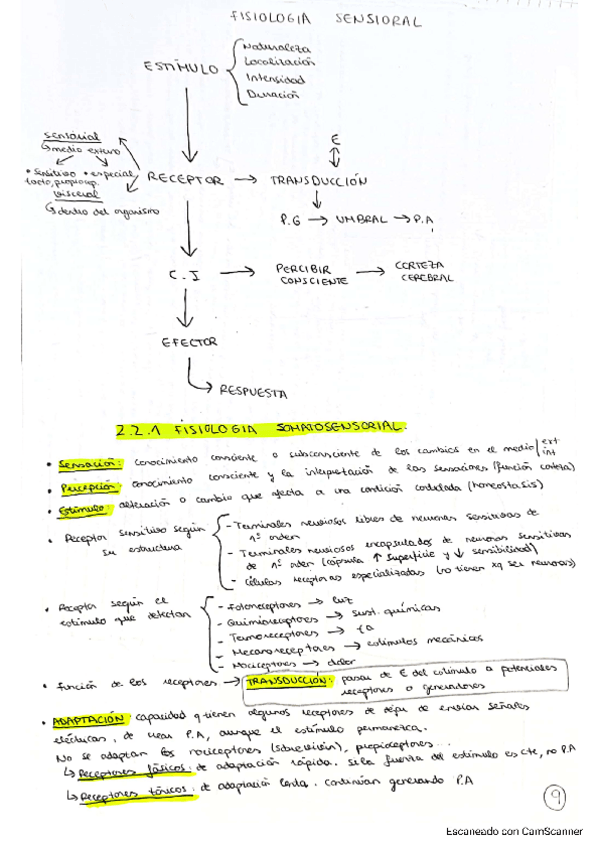 FISIOLOGIA SENSIORAL
ESTÍMULO
Naturaleza
Localización
Intensidad
Duración
sensorial
medio externo
• Sensitivo • especial
tacto, propiocep.
visceral
dentro del organismo
RECEPTOR → TRANSDUCCIÓN
E
P.G → UMBRAL → P.A
C.I → PERCIBIR CONSCIENTE → CORTEZA CEREBRAL
EFECTOR
RESPUESTA
2.2.1 FISIOLOGIA SOMATOSENSORIAL.
• Sensación: conocimiento consciente o subconsciente de los cambios en el medio/ ext int
• Percepción: conocimiento consciente y la interpretación de las sensaciones (función corteza)
• Estímulo: alteración o cambio que afecta a una condición controlada (homeostasis)
• Receptor sensitivo según su estructura
- Terminales nerviosos libres de neuronas sensitivas de
1º orden
- Terminales nerviosos encapsulados de neuronas sensitivas
de 1º orden (cápsula ↑ superficie y ↓ sensibilidad)
- Células receptoras especializadas (no tienen xq ser neuronas)
• Receptor según el
estímulo que detectan
- Fotoreceptores → luz
- Quimiorreceptores → sust. químicas
- Termoreceptores → tª
- Mecanoreceptores → estímulos mecánicos
- Nociceptores → dolor
• Función de los receptores → TRANSDUCCIÓN: pasar de E del estímulo a potenciales
receptores o generadores
• ADAPTACIÓN: capacidad q tienen algunos receptores de dejar de enviar señales
eléctricas, de crear P.A, aunque el estímulo permanezca.
No se adaptan los nociceptores (sobrevivir), propioceptores...
↳ Receptores fásicos: de adaptación rápida. si la fuerza del estímulo es cte, no P.A
↳ Receptores tónicos: de adaptación lenta. Continúan generando P.A
9
Escaneado con CamScanner